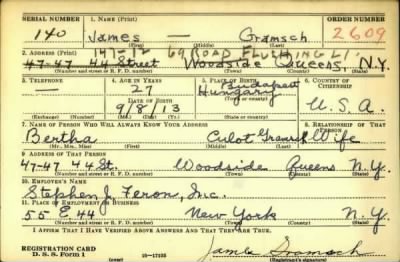 SERIAL NUMBER 1. NAME (Print) ORDER NUMBER
140 James — Gramsch 2609
(First) (Middle) (Last)
147-12 69 ROAD FLUSHING L.I.
2. ADDRESS (Print)
47-47 44 Street Woodside Queens, N.Y.
(Number and street or R. F. D. number) (Town) (County) (State)
3. TELEPHONE 4. AGE IN YEARS 5. PLACE OF BIRTH 6. COUNTRY OF CITIZENSHIP
— 27 Budapest
DATE OF BIRTH (Town or county)
9/8/13 Hungary U.S.A.
(Exchange) (No.) (Mo.) (Day) (Yr.) (State or country)
7. NAME OF PERSON WHO WILL ALWAYS KNOW YOUR ADDRESS 8. RELATIONSHIP OF THAT PERSON
Bertha Culot Gramsch Wife
(Mr., Mrs., Miss) (First) (Middle) (Last)
9. ADDRESS OF THAT PERSON
47-47 44 St. Woodside Queens N.Y.
(Number and street or R. F. D. number) (Town) (County) (State)
10. EMPLOYER'S NAME
Stephen J. Feron, Inc.
11. PLACE OF EMPLOYMENT OR BUSINESS
55 E. 44 New York N.Y.
(Number and street or R. F. D. number) (Town) (County) (State)
I AFFIRM THAT I HAVE VERIFIED ABOVE ANSWERS AND THAT THEY ARE TRUE.
REGISTRATION CARD
D. S. S. Form 1 16—17105 James Gramsch